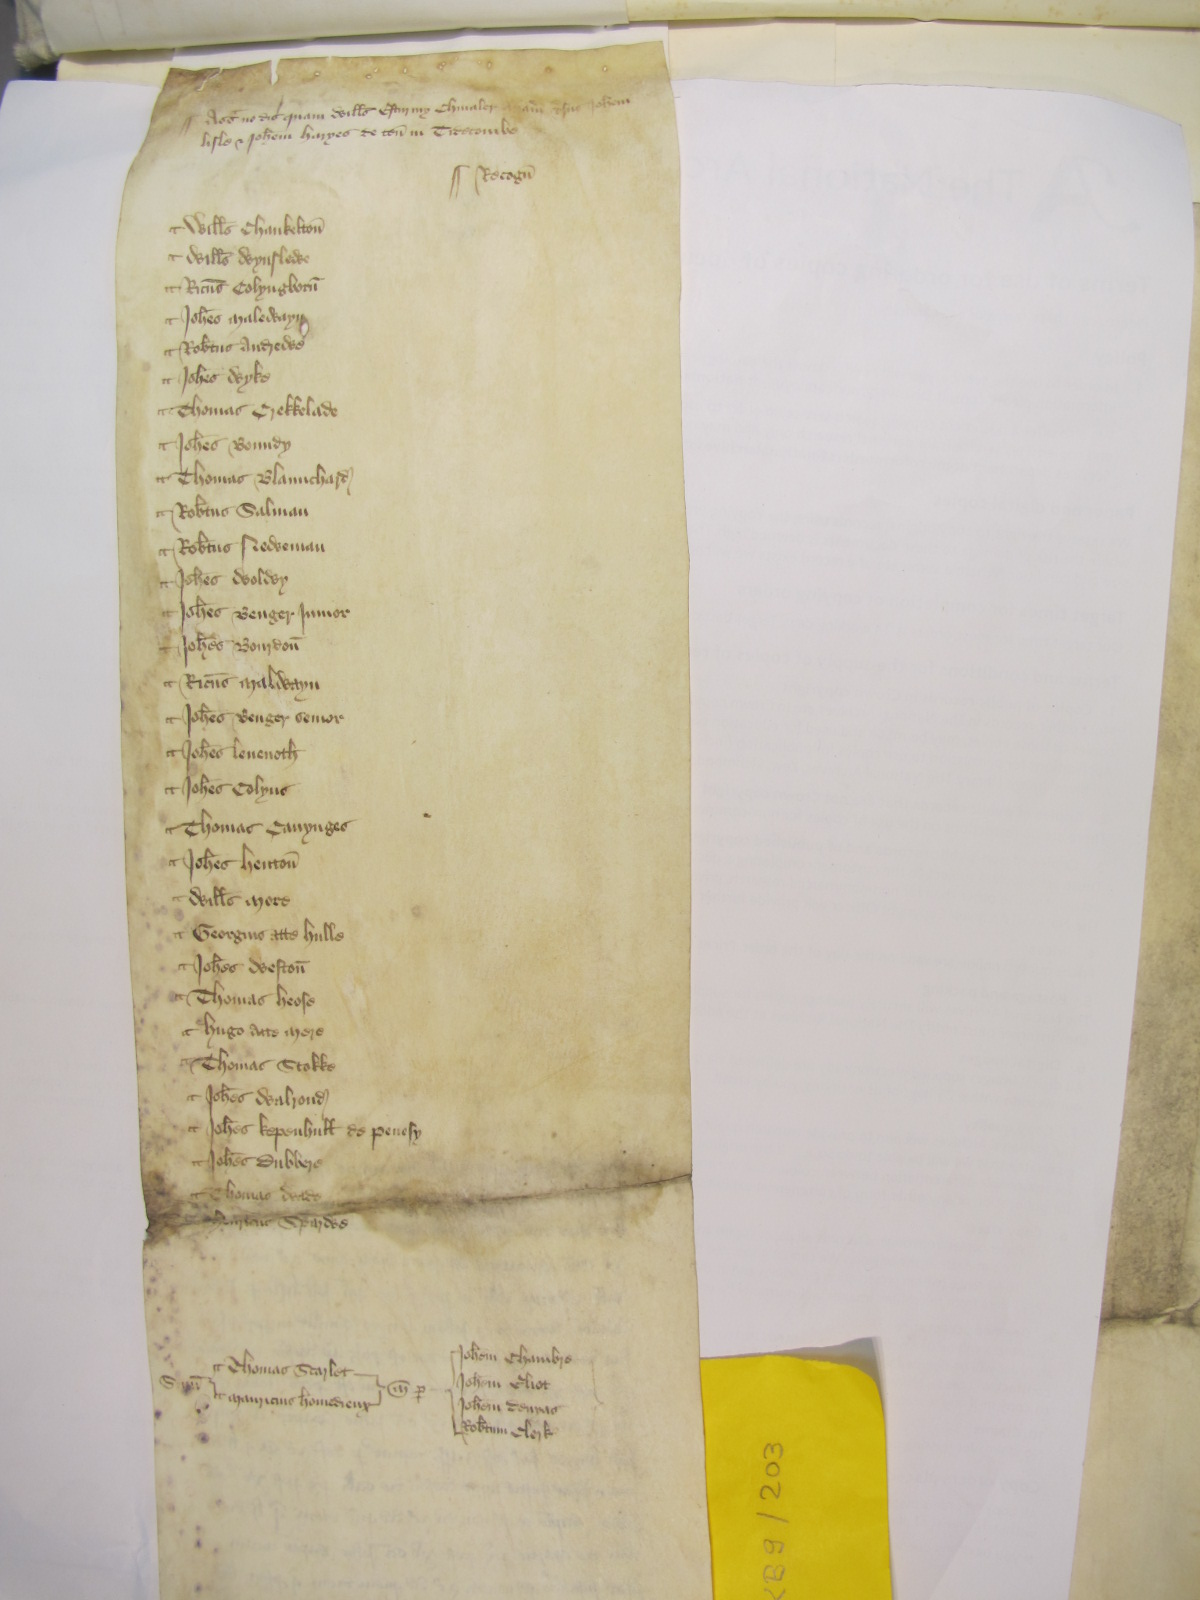 Ass no dis quam Wills Esturmy Chivaler versus Johem
lisle & Johem harpes de ten in Titecombe
Recogn
Wills Chauketon
Wills Wynslede
Ricus Colyngborn
Johes Malewayn
Robtus Andrewe
Johes Wyke
Thomas Crekkelade
Johes Boundy
Thomas Blaunchard
Robtus Salman
Robtus Nedeman
Johes Wolwy
Johes Benger Junior
Johes Bourdon
Ricus Malwayn
Johes Benger senior
Johes leuenoth
Johes Colyns
Thomas Canynges
Johes henton
Wills Mere
Georgius atte hulle
Johes Weston
Thomas heose
hugo atte Mere
Thomas Stokke
Johes Walrond
Johes kepenhull de penesy
Johes Dubbere
Thomas
Spardes
Thomas Scarlet
Mauricius homedieux
M p
Johem Chambre
Johem Eliot
Johem
Robtum Clerk
KB9 / 203